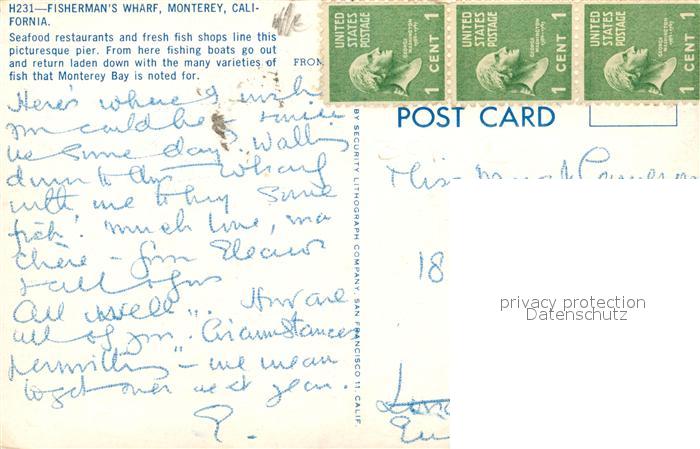 H231—FISHERMAN'S WHARF, MONTEREY, CALI-
FORNIA.
Seafood restaurants and fresh fish shops line this
picturesque pier. From here fishing boats go out
and return laden down with the many varieties of
fish that Monterey Bay is noted for.
FROM
UNITED STATES POSTAGE
GEORGE WASHINGTON
1 CENT
UNITED STATES POSTAGE
GEORGE WASHINGTON
1 CENT
UNITED STATES POSTAGE
GEORGE WASHINGTON
1 CENT
POST CARD
BY SECURITY LITHOGRAPH COMPANY, SAN FRANCISCO 11, CALIF.
Here's where I wish
you could be
us some day? Walk
down this wharf
with me & buy some
fish! Much love, ma
chère - from Eleanor
& all of us
All well". How are
all of you. Circumstances
permitting" - we mean
to get over next year.
E.
Miss Cameron
18
privacy protection
Datenschutz